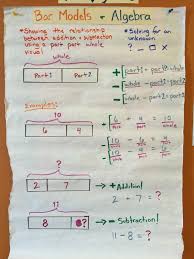 Bar Models + Algebra
• Showing the relationship between addition + subtraction using a part part whole visual
• Solving for an unknown
? — □ ×
whole
Part 1 Part 2
+ part1 + part2 = whole
- whole - part1 = part2
- whole - part2 = part1
Examples:
10
6 4
6 + 4 = 10
part part whole
10 - 6 = 4
whole part part
10 - 4 = 6
whole part part
?
2 7
→ + Addition!
2 + 7 = ?
11
8 ?
→ - Subtraction!
11 - 8 = ?